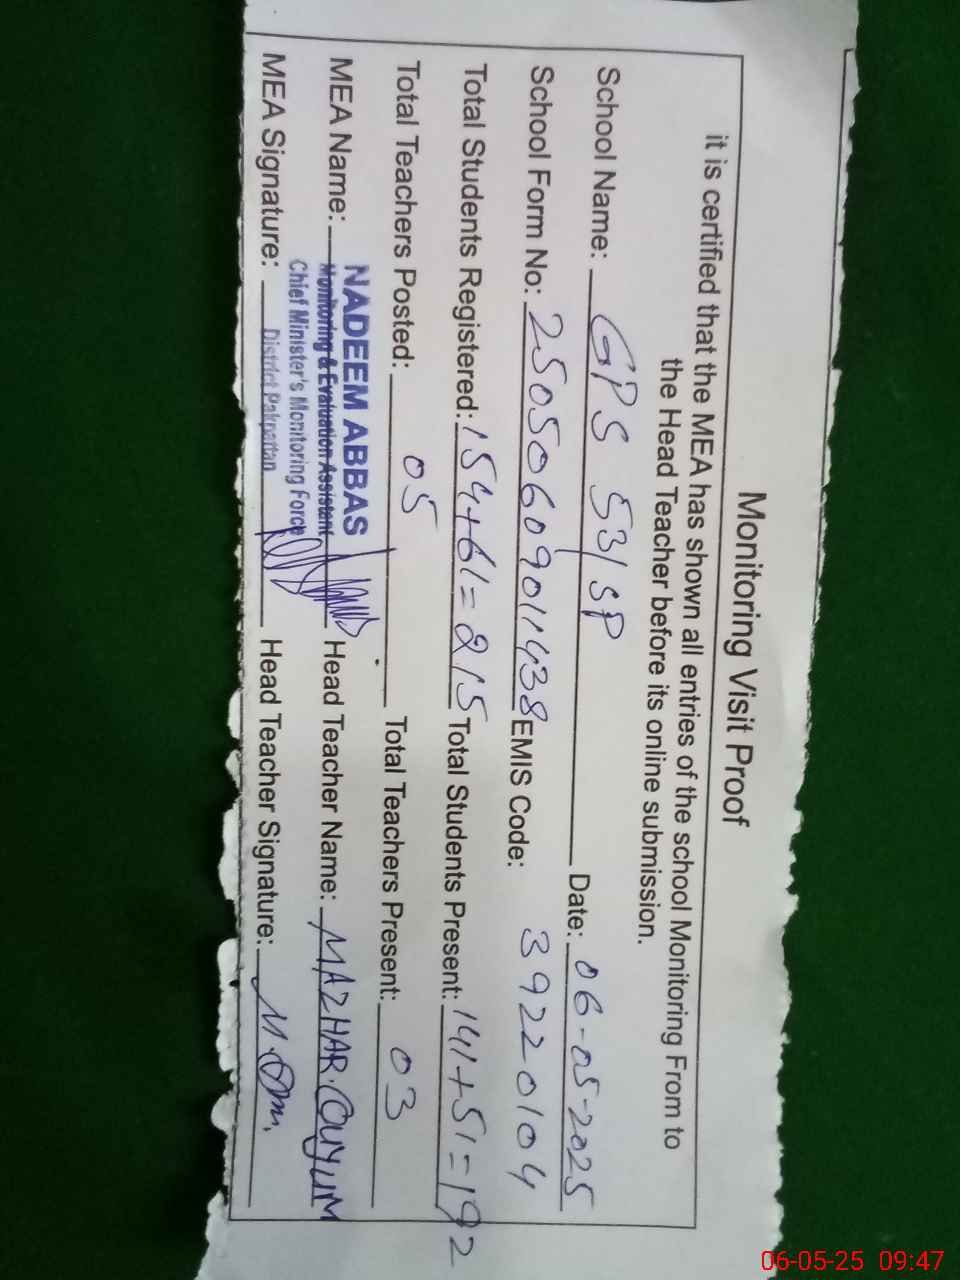 Monitoring Visit Proof
it is certified that the MEA has shown all entries of the school Monitoring From to
the Head Teacher before its online submission.
School Name: GPS 53/SP Date: 06-05-2025
School Form No: 25050609011438 EMIS Code: 39220104
Total Students Registered: 154+61=215 Total Students Present: 141+51=192
Total Teachers Posted: 05 Total Teachers Present: 03
MEA Name: NADEEM ABBAS Head Teacher Name: MAZHAR.QUYUM
Monitoring & Evaluation Assistant
Chief Minister's Monitoring Force
MEA Signature: District Pakpattan Head Teacher Signature:
06-05-25 09:47